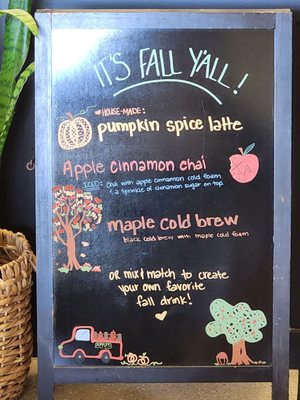 IT'S FALL Y'ALL!
*HOUSE-MADE:
pumpkin spice latte
Apple cinnamon chai
ICED: chai with apple cinnamon cold foam
& a sprinkle of cinnamon sugar on top.
maple cold brew
black cold brew with maple cold foam
OR mix & match to create
your own favorite
fall drink!